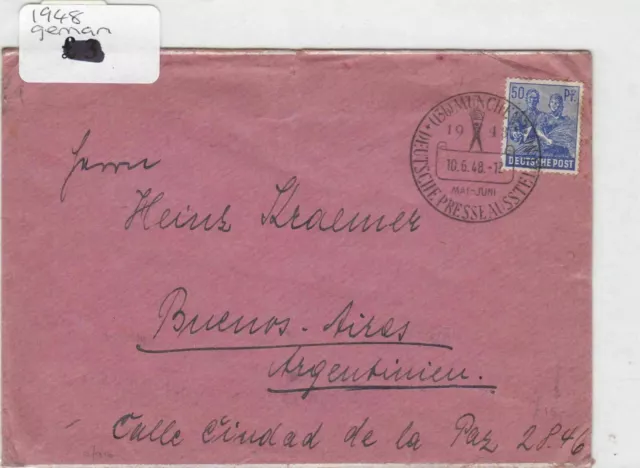 1948
geman
50 Pf.
DEUTSCHE POST
MÜNCHEN
19 4
10.6.48.-12
MAI-JUNI
DEUTSCHE PRESSEAUSSTELL
Herrn
Heinz Kraemer
Buenos-Aires
Argentinien.
Calle Ciudad de la Paz 2846